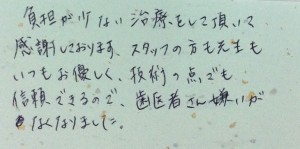 負担が少ない治療をして頂いて
感謝しております。スタッフの方も先生も
いつもお優しく、技術の点でも
信頼できるので、歯医者さん嫌いが
なくなりました。